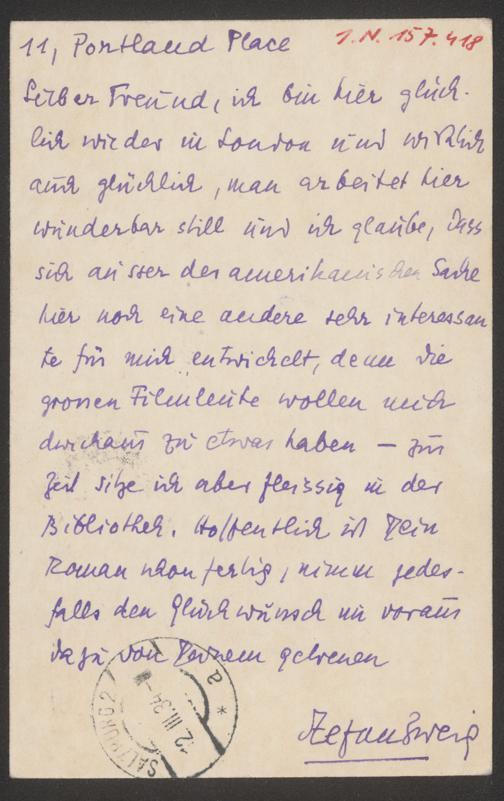 11, Portland Place
I.N. 157.418
Lieber Freund, ich bin hier glück-
lich wieder in London und wirklich
auch glücklich, man arbeitet hier
wunderbar still und ich glaube, dass
sich ausser der amerikanischen Sache
hier noch eine andere sehr interessan
te für mich entwickelt, denn die
grossen Filmleute wollen mich
durchaus zu etwas haben – zur
Zeit sitze ich aber fleissig in der
Bibliothek. Hoffentlich ist Dein
Roman schon fertig, nimm jedes-
falls den Glückwunsch im voraus
dazu von Deinem getreuen
Stefan Zweig
SALZBURG 2
12.III.34
a
*